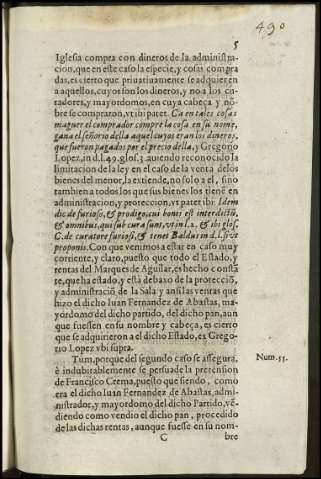 490
5
Iglesia compra con dineros de la administra-
cion, que en este caso la especie, y cosas compra
das, es cierto que priuatiuamente se adquieren
a aquellos, cuyos son los dineros, y no a los cu-
radores, y mayordomos, en cuya cabeça y nõ-
bre se compraron, vt ibi patet. Ca en tales cosas
maguer el comprador compre la cosa en su nome,
gana el señorio della aquel cuyos eran los dineros,
que fueron pagados por el precio della, y Gregorio
Lopez, in d.l.49. glos. 3. auiendo reconocido la
limitacion de la ley en el caso de la venta de los
bienes del menor, la extiende, no solo a el, sino
tambien a todos los que sus bienes los tienẽ en
administracion, y proteccion, vt patet ibi: Idem
dic de furioso, & prodigo, cui bonis est interdictũ,
& omnibus, qui sub cura sunt, vt in l.2. & ibi glos.
C. de curatore furiosi, & tenet Baldus in d.l. si vt
proponis. Con que venimos a estar en caso muy
corriente, y claro, puesto que todo el Estado, y
rentas del Marques de Aguilar, es hecho constã
te, que ha estado, y està debaxo de la protecciõ,
y administraciõ de la Sala y ansi las ventas que
hizo el dicho Iuan Fernandez de Abastas, ma-
yordomo del dicho partido, del dicho pan, aun
que fuessen en su nombre y cabeça, es cierto
que se adquirieron a el dicho Estado, ex Grego-
rio Lopez vbi supra.
Tum, porque del segundo caso se assegura,
è indubirablemente se persuade la pretension
de Francisco Crema, puesto que siendo, como
era el dicho Iuan Fernandez de Abastas, admi-
nistrador, y mayordomo del dicho Partido, vẽ-
diendo como vendio el dicho pan, procedido
de las dichas rentas, aunque fuesse en su nom-
Num. 55.
C
bre